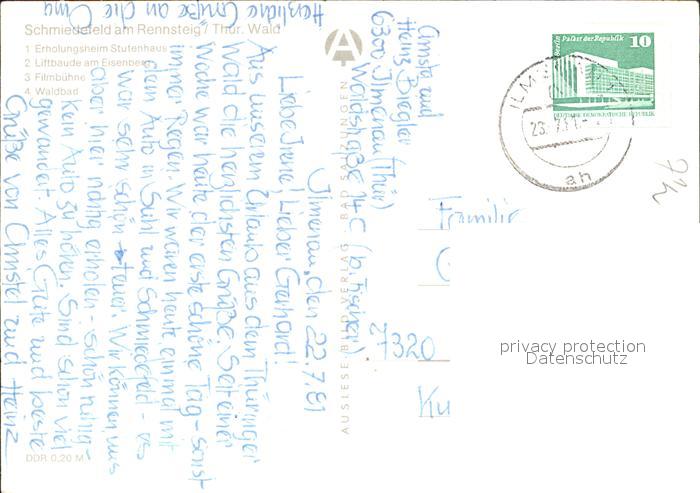 Schmiedefeld am Rennsteig / Thür. Wald
1 Erholungsheim Stutenhaus
2 Liftbaude am Eisenberg
3 Filmbühne
4 Waldbad
Herzliche Grüße an die Oma
Ilmenau, den 22.7.81
Liebe Irene! Lieber Gerhard!
Aus unserem Urlaub aus dem Thüringer
Wald die herzlichsten Grüße. Seit einer
Woche war heute der erste schöne Tag - sonst
immer Regen. Wir waren heute einmal mit
dem Auto in Suhl und Schmiedefeld - es
war sehr schön - teuer. Wir können uns
aber hier richtig erholen - schön ruhig -
kein Auto zu hören. Sind schon viel
gewandert. Alles Gute und beste
Grüße von Christel und Heinz
DDR 0,20 M
AUSLESE-BILD-VERLAG BAD SALZUNGEN
Heinz
6300 Ilmenau (Thür)
Waldstraße 14 C (b. Fischer)
Berlin Palast der Republik
10
DEUTSCHE DEMOKRATISCHE REPUBLIK
Familie
G
7320
Ku
privacy protection
Datenschutz